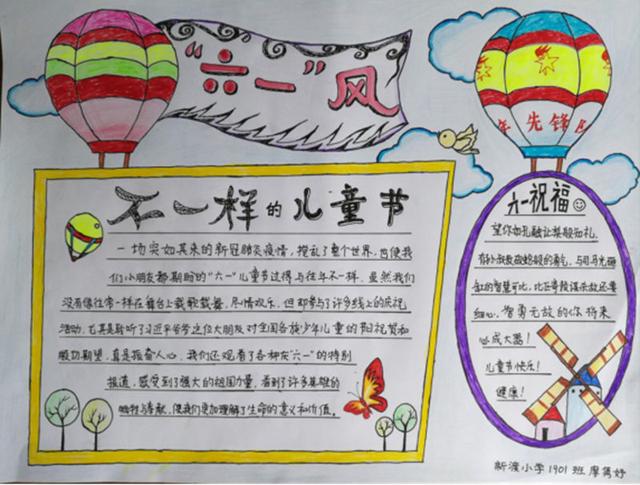 “六一”风
先锋
不一样的儿童节
一场突如其来的新冠肺炎疫情，搅乱了整个世界，也使我
们小朋友都期盼的“六一”儿童节过得与往年不一样。虽然我们
没有像往常一样在舞台上载歌载舞、尽情欢乐，但却参与了许多线上的庆祝
活动，尤其是聆听了习近平爷爷这位大朋友对全国各族少年儿童的节日祝贺和
殷切期望，真是振奋人心。我们还观看了各种庆“六一”的特别
报道，感受到了强大的祖国力量，看到了许多英雄的
牺牲与奉献，使我们更加理解了生命的意义和价值。
六一祝福
望你如孔融让梨般知礼，
有孙叔敖救蛇般的勇气，与司马光砸
缸的智慧可比，比
细心，智勇无敌的你将来
必成大器！
儿童节快乐！
健康！
新渡小学1901班廖